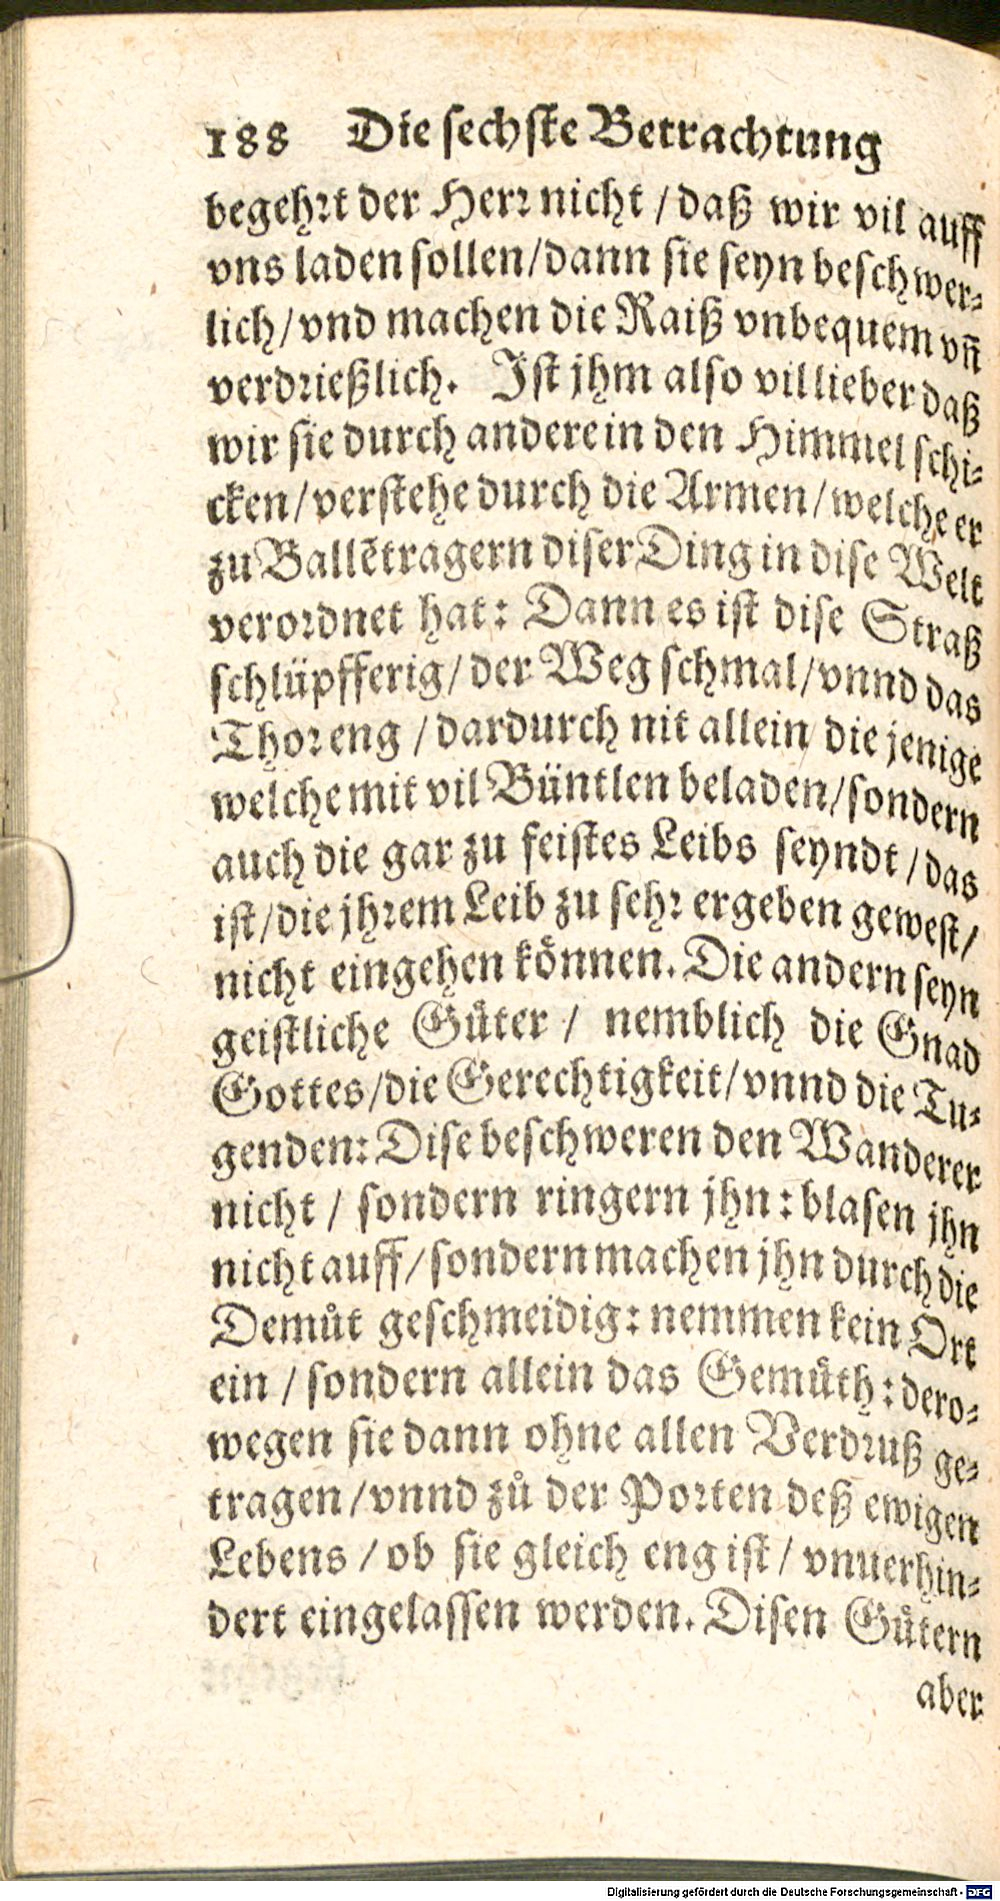 188 Die sechste Betrachtung
begehrt der Herr nicht / daß wir vil auff
vns laden sollen/dann sie seyn beschwer-
lich/vnd machen die Raiß vnbequem vn̄
verdrießlich. Ist jhm also vil lieber daß
wir sie durch andere in den Himmel schi-
cken/verstehe durch die Armen/welche er
zu Ballẽtragern diser Ding in dise Welt
verordnet hat: Dann es ist dise Straß
schlüpfferig/der Weg schmal/vnnd das
Thor eng /dardurch nit allein die jenige
welche mit vil Büntlen beladen/sondern
auch die gar zu feistes Leibs seyndt /das
ist/die jhrem Leib zu sehr ergeben gewest/
nicht eingehen können. Die andern seyn
geistliche Guͤter / nemblich die Gnad
Gottes/die Gerechtigkeit/vnnd die Tu-
genden: Dise beschweren den Wanderer
nicht / sondern ringern jhn: blasen jhn
nicht auff/sondern machen jhn durch die
Demuͤt geschmeidig: nemmen kein Ort
ein / sondern allein das Gemuͤth: dero-
wegen sie dann ohne allen Verdruß ge-
tragen/vnnd zů der Porten deß ewigen
Lebens / ob sie gleich eng ist/ vnuerhin-
dert eingelassen werden. Disen Guͤtern
aber
Digitalisierung gefördert durch die Deutsche Forschungsgemeinschaft - DFG